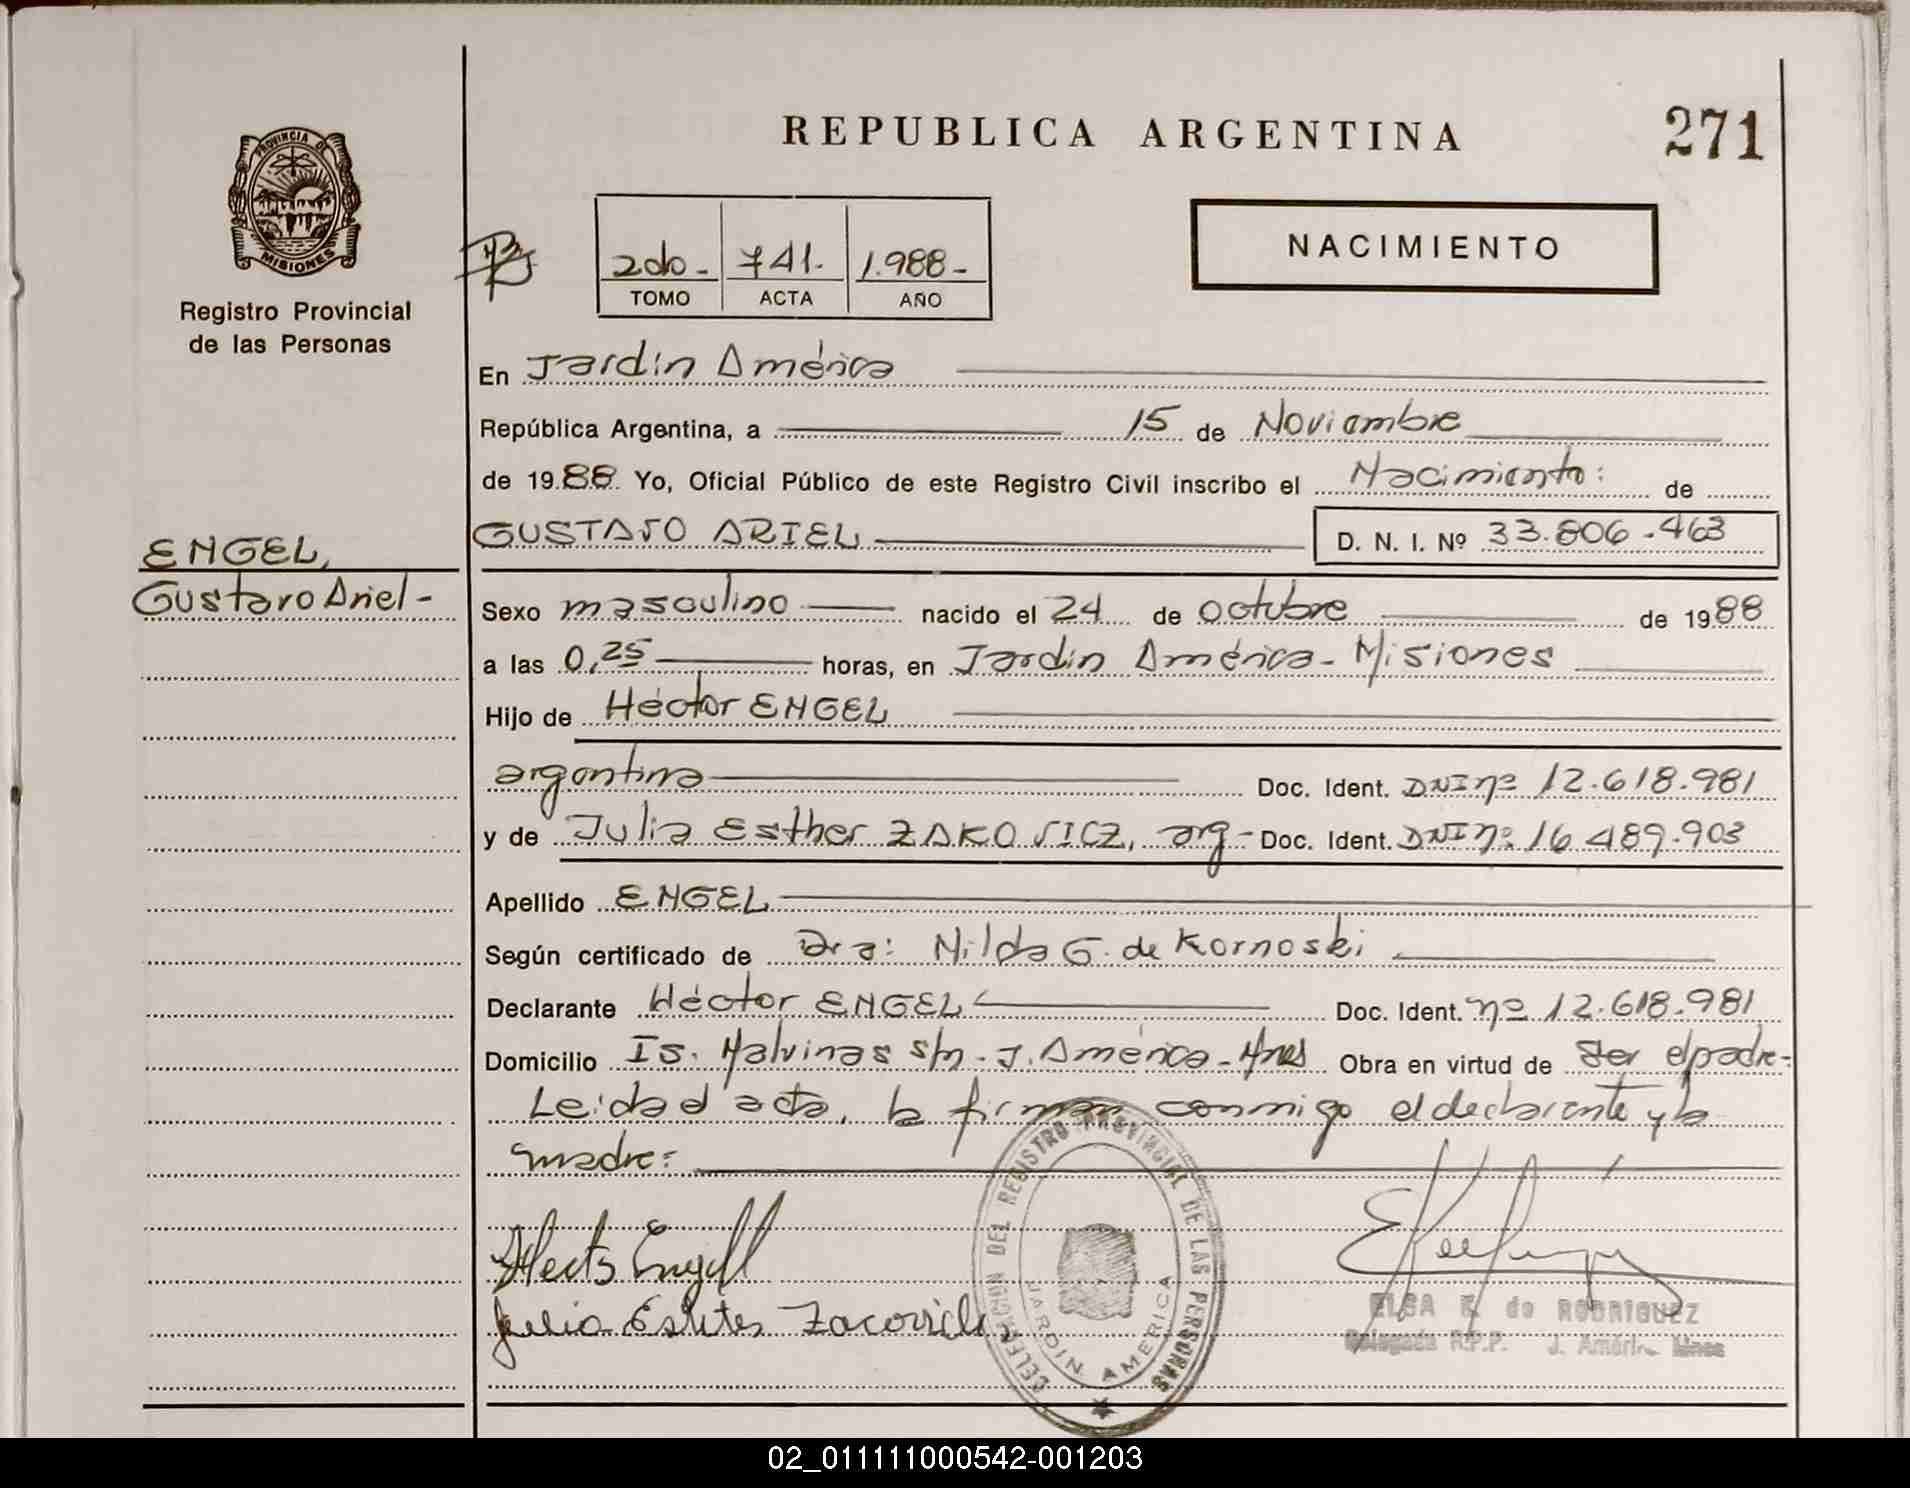 REPUBLICA ARGENTINA
271
PROVINCIA D
MISIONES
Registro Provincial
de las Personas
2do - 741. 1.988 -
TOMO ACTA AÑO
NACIMIENTO
En Jardín América
República Argentina, a 15 de Noviembre
de 1988 Yo, Oficial Público de este Registro Civil inscribo el Nacimiento: de
GUSTAVO ARIEL D. N. I. Nº 33.806.463
ENGEL,
Gustavo Ariel -
Sexo masculino nacido el 24 de octubre de 1988
a las 0,25 horas, en Jardín América - Misiones
Hijo de Héctor ENGEL
argentina Doc. Ident. DNI nº 12.618.981
y de Julia Esther ZAKOVICZ, arg - Doc. Ident. DNI nº: 16.489.903
Apellido ENGEL
Según certificado de Dra: Nilda G. de Kornoski
Declarante Héctor ENGEL Doc. Ident. nº 12.618.981
Domicilio Is. Malvinas s/n - J. América - Mnes Obra en virtud de ser el padre -
Leída el acta, la firman conmigo el declarante y la
madre:
Julia Esther
DELEGACION DEL REGISTRO PROVINCIAL DE LAS PERSONAS
JARDIN AMERICA
ELSA E. de RODRIGUEZ
Delegada R.P.P. J. América Mnes
02_011111000542-001203